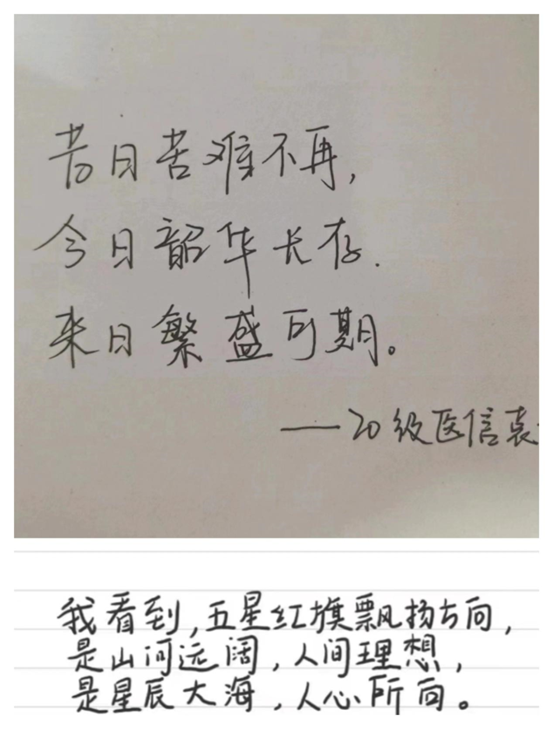 昔日苦难不再,
今日韶华长存.
来日繁盛可期。
——20级医信袁
我看到,五星红旗飘扬方向,
是山河远阔,人间理想,
是星辰大海,人心所向。